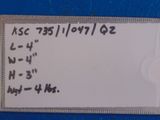 KSC 735/1/047/Q2
L - 4"
W - 4"
H - 3"
Wgt - 4 lbs.